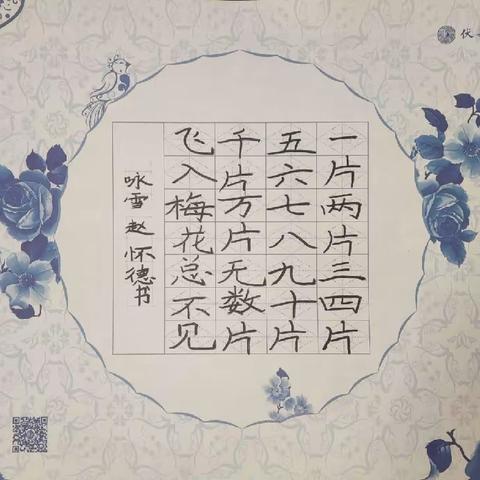 一片两片三四片
五六七八九十片
千片万片无数片
飞入梅花总不见
咏雪 赵怀德书
伏